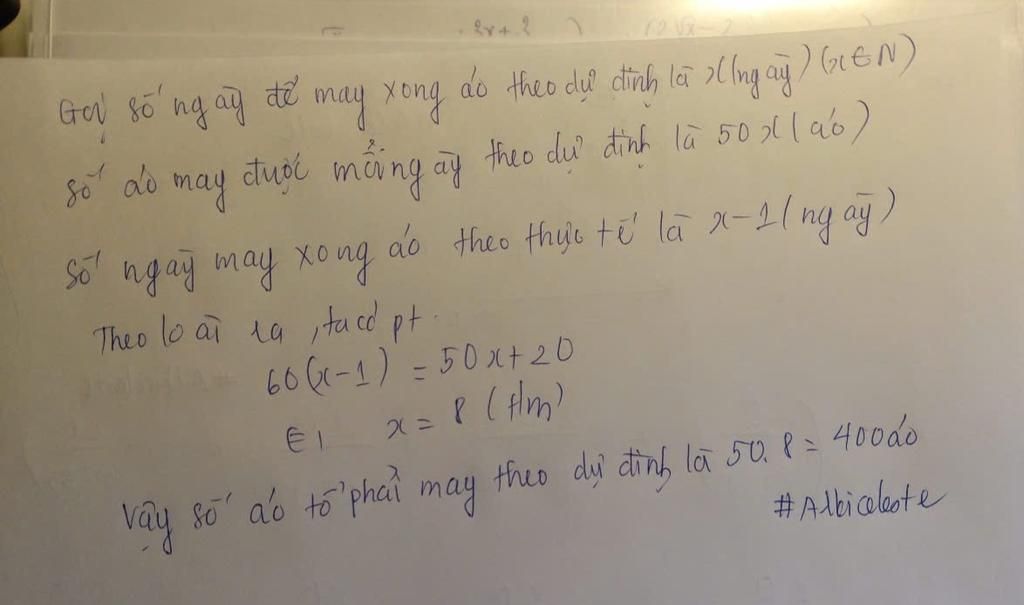 2x+2
Gọi số ngày để may xong áo theo dự định là x(ngày) (x∈N)
số áo may được mỗi ngày theo dự định là 50x(áo)
số ngày may xong áo theo thực tế là x-1(ngày)
Theo bài ra, ta có pt.
60(x-1) = 50x+20
x = 8 (t/m)
Vậy số áo tổ phải may theo dự định là 50.8 = 400áo
#Albiceleste